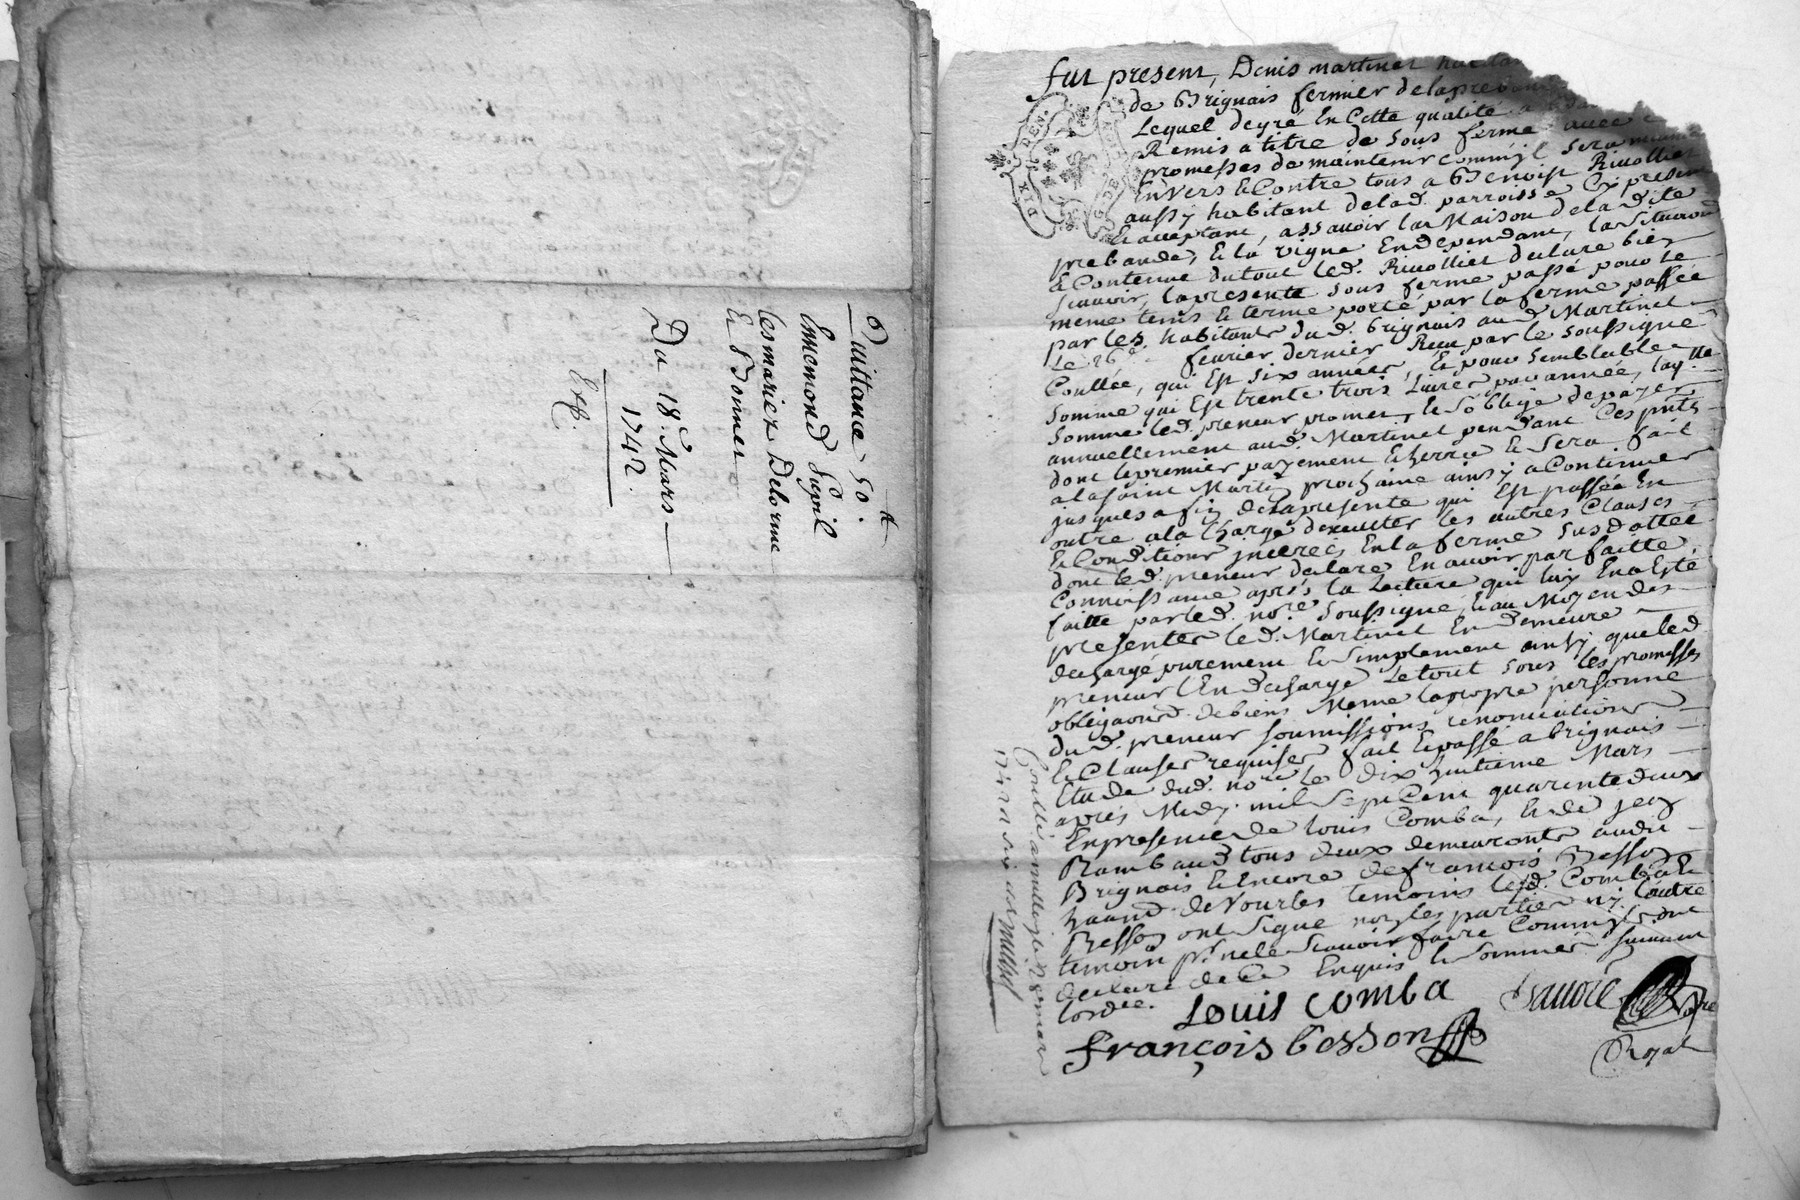 Quittance 50.ᵗᵗ
Ennemond Pupil
les mariez Delorme
& Bonnet
Du 18.ᵉ Mars
1742.
Exp.
fut present, Denis martinet habitan
de Brignais fermier de la preban
Lequel de gre En Cette qualité a
Remis a titre de sous ferme avec
promesses de maintenir comm'jl sera
Envers & Contre tous a Benoist Rivollier
aussy habitant de lad. parroisse Cy present
& acceptant, assavoir la Maison de la dite
prebande, & la vigne En dependant, la Situaon
& Contenue du tout led. Rivollier declare bien
scavoir, la presente sous ferme passé pour le
meme tems & terme porté par la ferme passée
par les habitants dud. Brignais aud. Martinet
Le 26ᵉ fevrier dernier Receu par le soussigné
Coullée, qui Est six années, & pour semblable
somme qui Est trente trois Livres par année, laq.ᵗᵗᵉ
somme led. preneur promet, & s'oblige de payer
annuellement aud. Martinet pendant Ces pnts
dont le premier payement Echerra & sera fait
a la saint Martin prochaine ainsy a Continuer
jusques a fin de la presente qui Est passée En
outre a la Charge d'executer les autres Clauses
& Conditions jnserées En la ferme susdattée
dont led. preneur declare En avoir parfaitte
Connoissance aprés la Lecture qui luy En a Esté
faitte par led. noʳᵉ soussigné, & au Moyen des
presentes led. Martinet En demeure
dechargé purement & simplement ainsy que led.
preneur l'En decharge Le tout sous les promesses
obligaons de biens Meme la propre personne
dud. preneur soumissions renonciations
& Clauses requises fait & passé a Brignais
Etude dud. noʳᵉ le dix huitieme Mars
aprés Midy. mil sept Cent quarente deux
En presence de Louis Comba, & de jean
Rambaud tous deux demeurants audit
Brignais & Encore de françois Besson
de Vourles temoins led. Comba &
Besson ont signé non les parties ny l'autre
temoin pʳ ne le scavoir faire Comm'jls ont
declaré de Ce Enquis & sommés suivant
lordce.
Louis Comba
françois besson
Royal
Coullé a
1742 R six sols